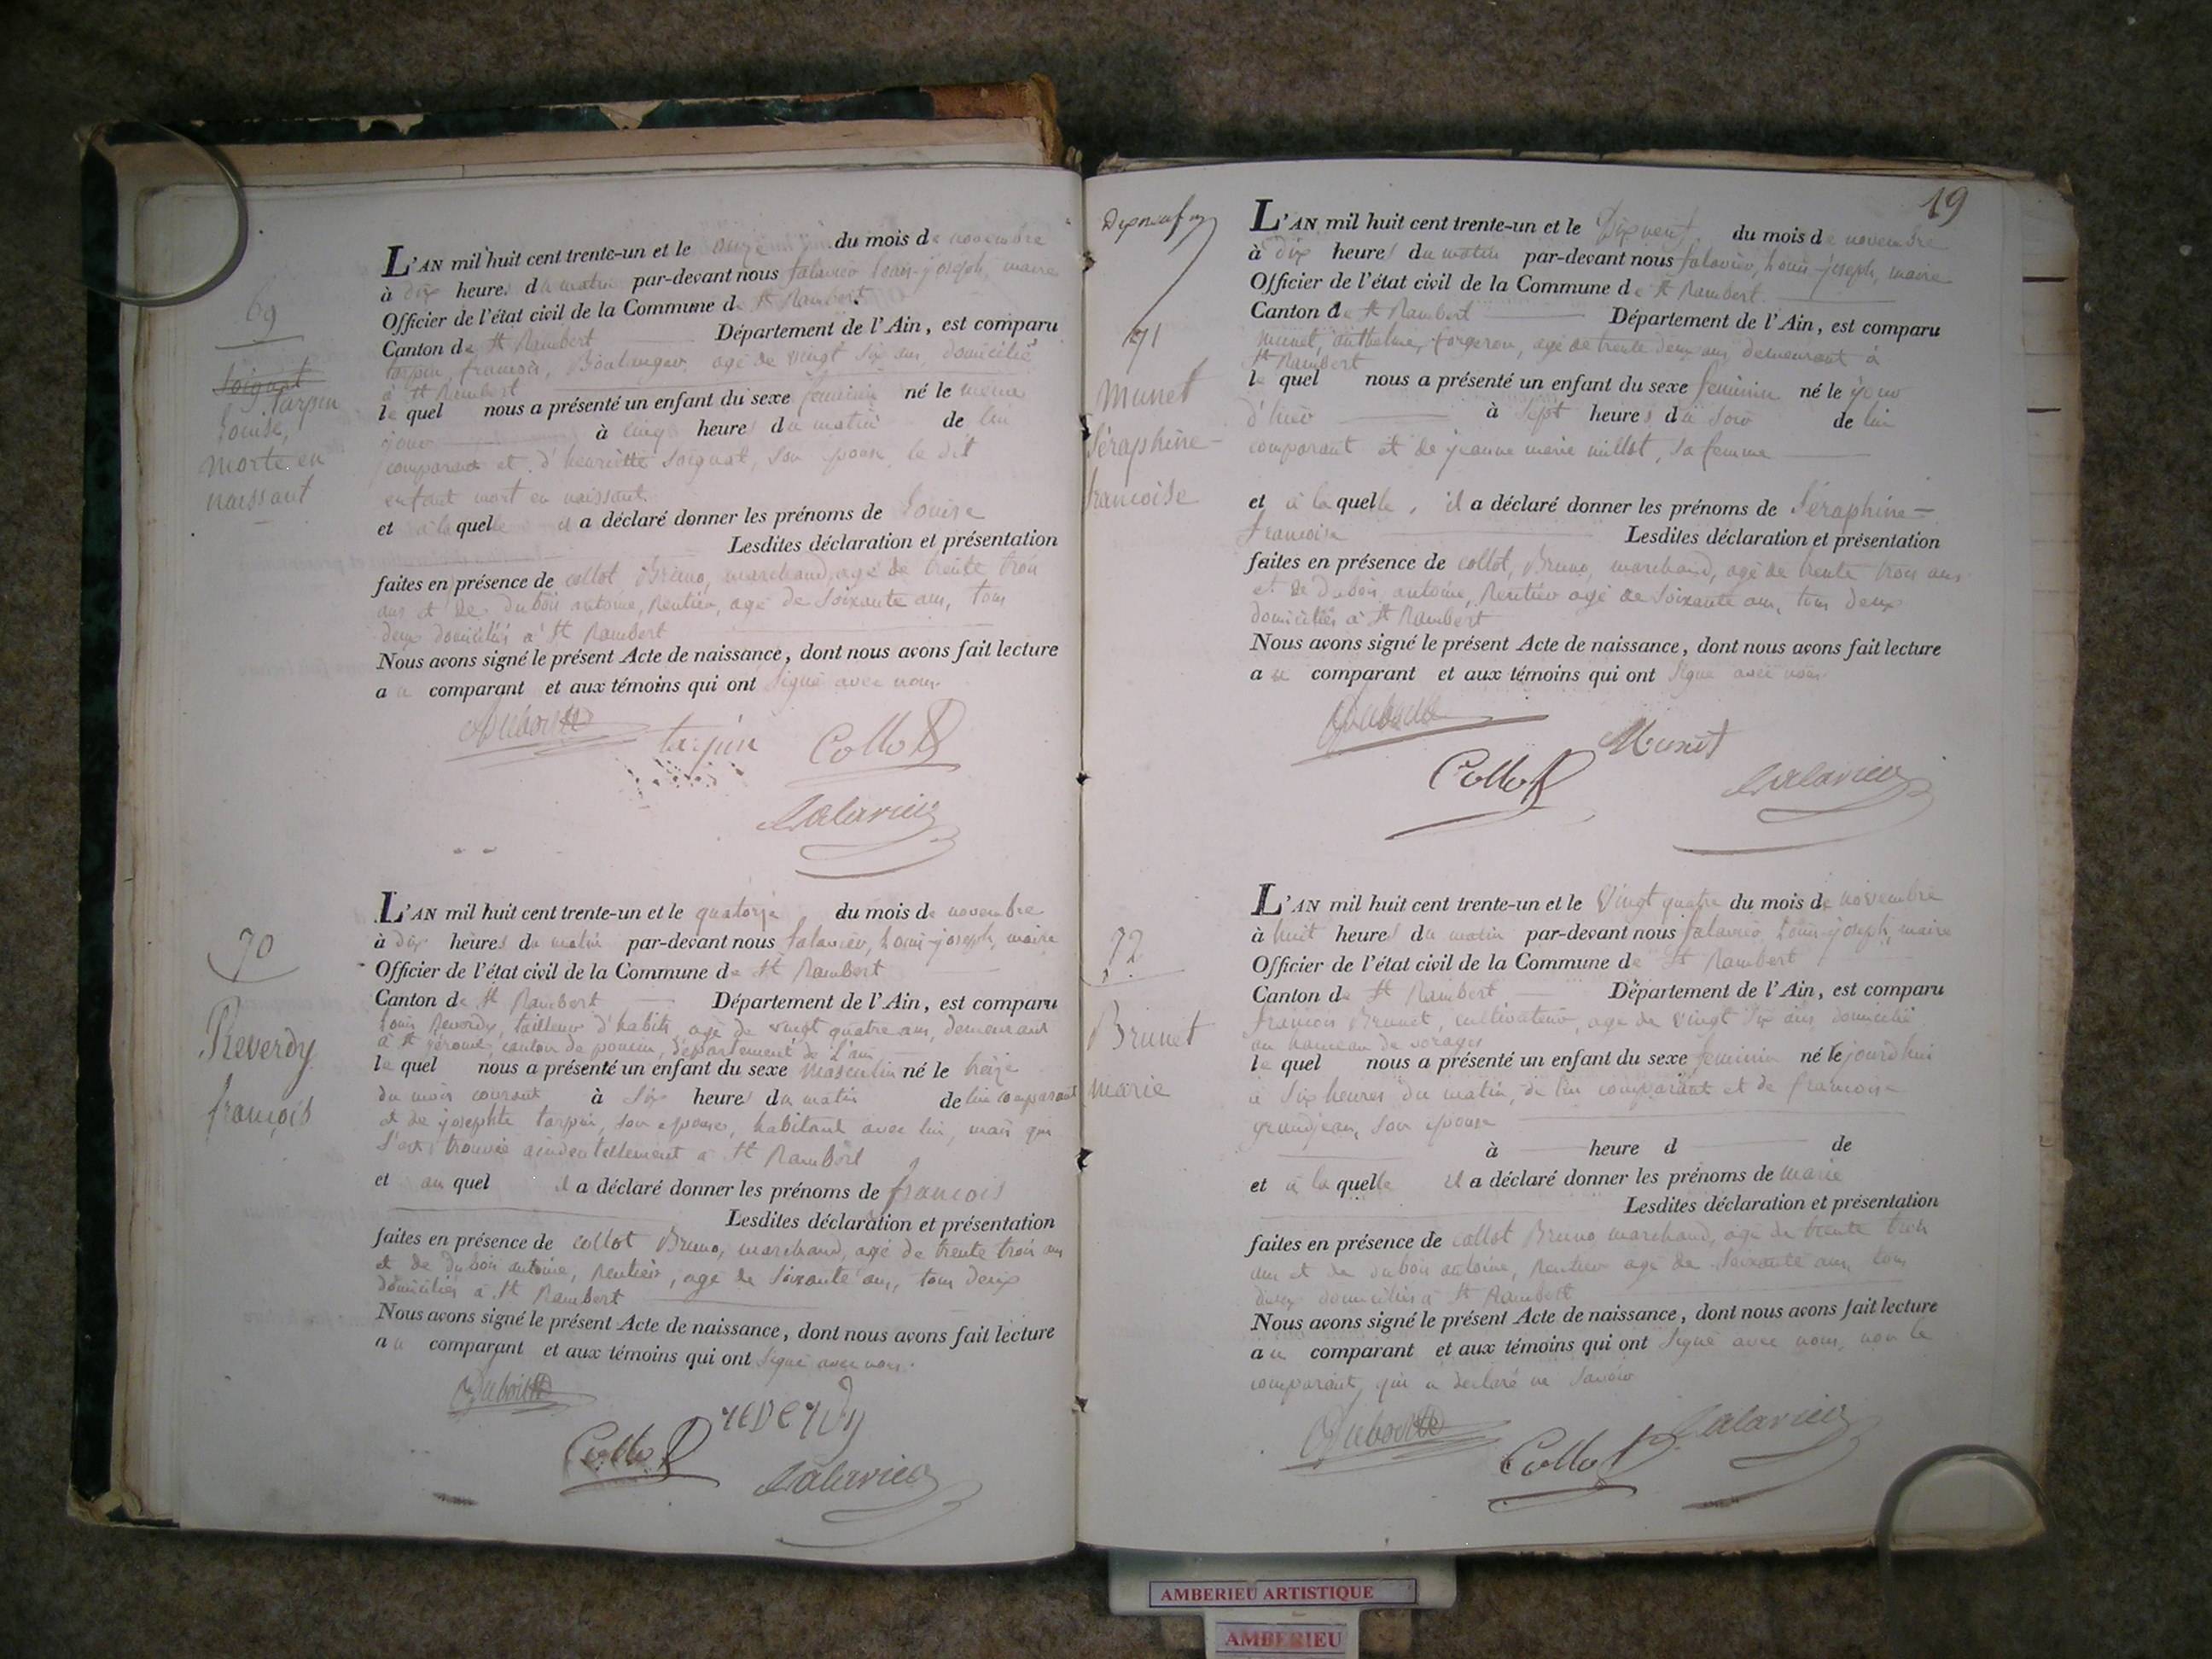 69
Soignat
Tarpin
Louise,
morte en
naissant
L'AN mil huit cent trente-un et le onze du mois de novembre
à dix heures du matin par-devant nous Salavier Louis-joseph, maire
Officier de l'état civil de la Commune de St Rambert
Canton de St Rambert Département de l'Ain, est comparu
tarpin, françois, Boulanger, agé de vingt six ans, domicilié
à St Rambert
lequel nous a présenté un enfant du sexe feminin né le meme
jour à cinq heures du matin de lui
comparant et d'henriette Soignat, son epouse, le dit
enfant mort en naissant.
et à laquelle il a déclaré donner les prénoms de Louise
Lesdites déclaration et présentation
faites en présence de collot Bruno, marchand, agé de trente trois
ans et de dubois antoine, Rentier, agé de Soixante ans, tous
deux domiciliés à St Rambert
Nous avons signé le présent Acte de naissance, dont nous avons fait lecture
au comparant et aux témoins qui ont Signé avec nous.
tarpin Collot
Salavier
70
Reverdy
françois
L'AN mil huit cent trente-un et le quatorze du mois de novembre
à dix heures du matin par-devant nous Salavier, Louis-joseph, maire
Officier de l'état civil de la Commune de St Rambert
Canton de St Rambert Département de l'Ain, est comparu
Louis Reverdy, tailleur d'habits, agé de vingt quatre ans, demeurant
à St jérome, canton de poncin, département de L'ain
lequel nous a présenté un enfant du sexe masculin né le treize
du mois courant à Six heures du matin de lui comparant
et de josephte tarpin, son epouse, habitant avec lui, mais qui
s'est trouvée accidentellement à St Rambert
et auquel il a déclaré donner les prénoms de françois
Lesdites déclaration et présentation
faites en présence de collot Bruno, marchand, agé de trente trois ans
et de dubois antoine, Rentier, agé de Soixante ans, tous deux
domiciliés à St Rambert
Nous avons signé le présent Acte de naissance, dont nous avons fait lecture
au comparant et aux témoins qui ont Signé avec nous.
reverdy
Collot
Salavier
19
71
Munet
Séraphine-
francoise
L'AN mil huit cent trente-un et le Dix neuf du mois de novembre
à dix heures du matin par-devant nous Salavier, Louis-joseph, maire
Officier de l'état civil de la Commune de St Rambert
Canton de St Rambert Département de l'Ain, est comparu
munet, anthelme, forgeron, agé de trente deux ans, demeurant à
St Rambert
lequel nous a présenté un enfant du sexe feminin né le jour
d'hier à Sept heures du Soir de lui
comparant et de jeanne marie millot, sa femme
et à laquelle, il a déclaré donner les prénoms de Séraphine-
francoise
Lesdites déclaration et présentation
faites en présence de collot, Bruno, marchand, agé de trente trois ans
et de Dubois, antoine, Rentier agé de Soixante ans, tous deux
domiciliés à St Rambert
Nous avons signé le présent Acte de naissance, dont nous avons fait lecture
au comparant et aux témoins qui ont Signé avec nous
Munet
Collot Salavier
72
Brunet
marie
L'AN mil huit cent trente-un et le Vingt quatre du mois de novembre
à huit heures du matin par-devant nous Salavier, Louis-joseph, maire
Officier de l'état civil de la Commune de St Rambert
Canton de St Rambert Département de l'Ain, est comparu
françois Brunet, cultivateur, agé de vingt Six ans, domicilié
au hameau de
lequel nous a présenté un enfant du sexe feminin né
à Six heures du matin, de lui comparant et de francoise
grandjean, son epouse
à heure d de
et à laquelle il a déclaré donner les prénoms de marie
Lesdites déclaration et présentation
faites en présence de collot Bruno marchand, agé de trente trois
ans et de dubois antoine, rentier agé de Soixante ans, tous
deux domiciliés à St Rambert
Nous avons signé le présent Acte de naissance, dont nous avons fait lecture
au comparant et aux témoins qui ont Signé avec nous, non le
comparant, qui a declaré ne Savoir
Collot Salavier
AMBERIEU ARTISTIQUE
AMBERIEU